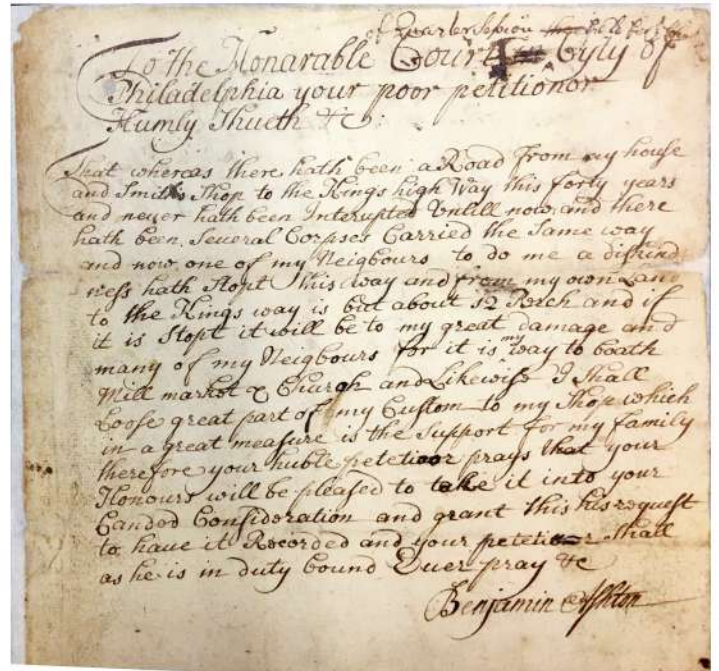 of Quarter Session held for the
To the Honarable Court Cyty of
Philadelphia your poor petitionor
Humly Shueth &c:
That whereas there hath been a Road from my house
and Smiths Shop to the Kings high Way this forty years
and never hath been Interupted Untill now, and there
hath been Several Corpses Carried the Same way
and now one of my Neigbours to do me a diskind
ness hath Stopt this way and from my own Land
to the Kings way is but about 12 Perch and if
it is Stopt it will be to my great damage and
many of my Neigbours for it is my way to boath
Mill market & Church and Likewise I Shall
Loose great part of my Custom to my Shop which
in a great measure is the Support for my family
therefore your huble petetioor prays that your
Honours will be pleased to take it into your
Canded Consideration and grant this his request
to have it Recorded and your petetioor Shall
as he is in duty bound Ever pray &c
Benjamin Ashton